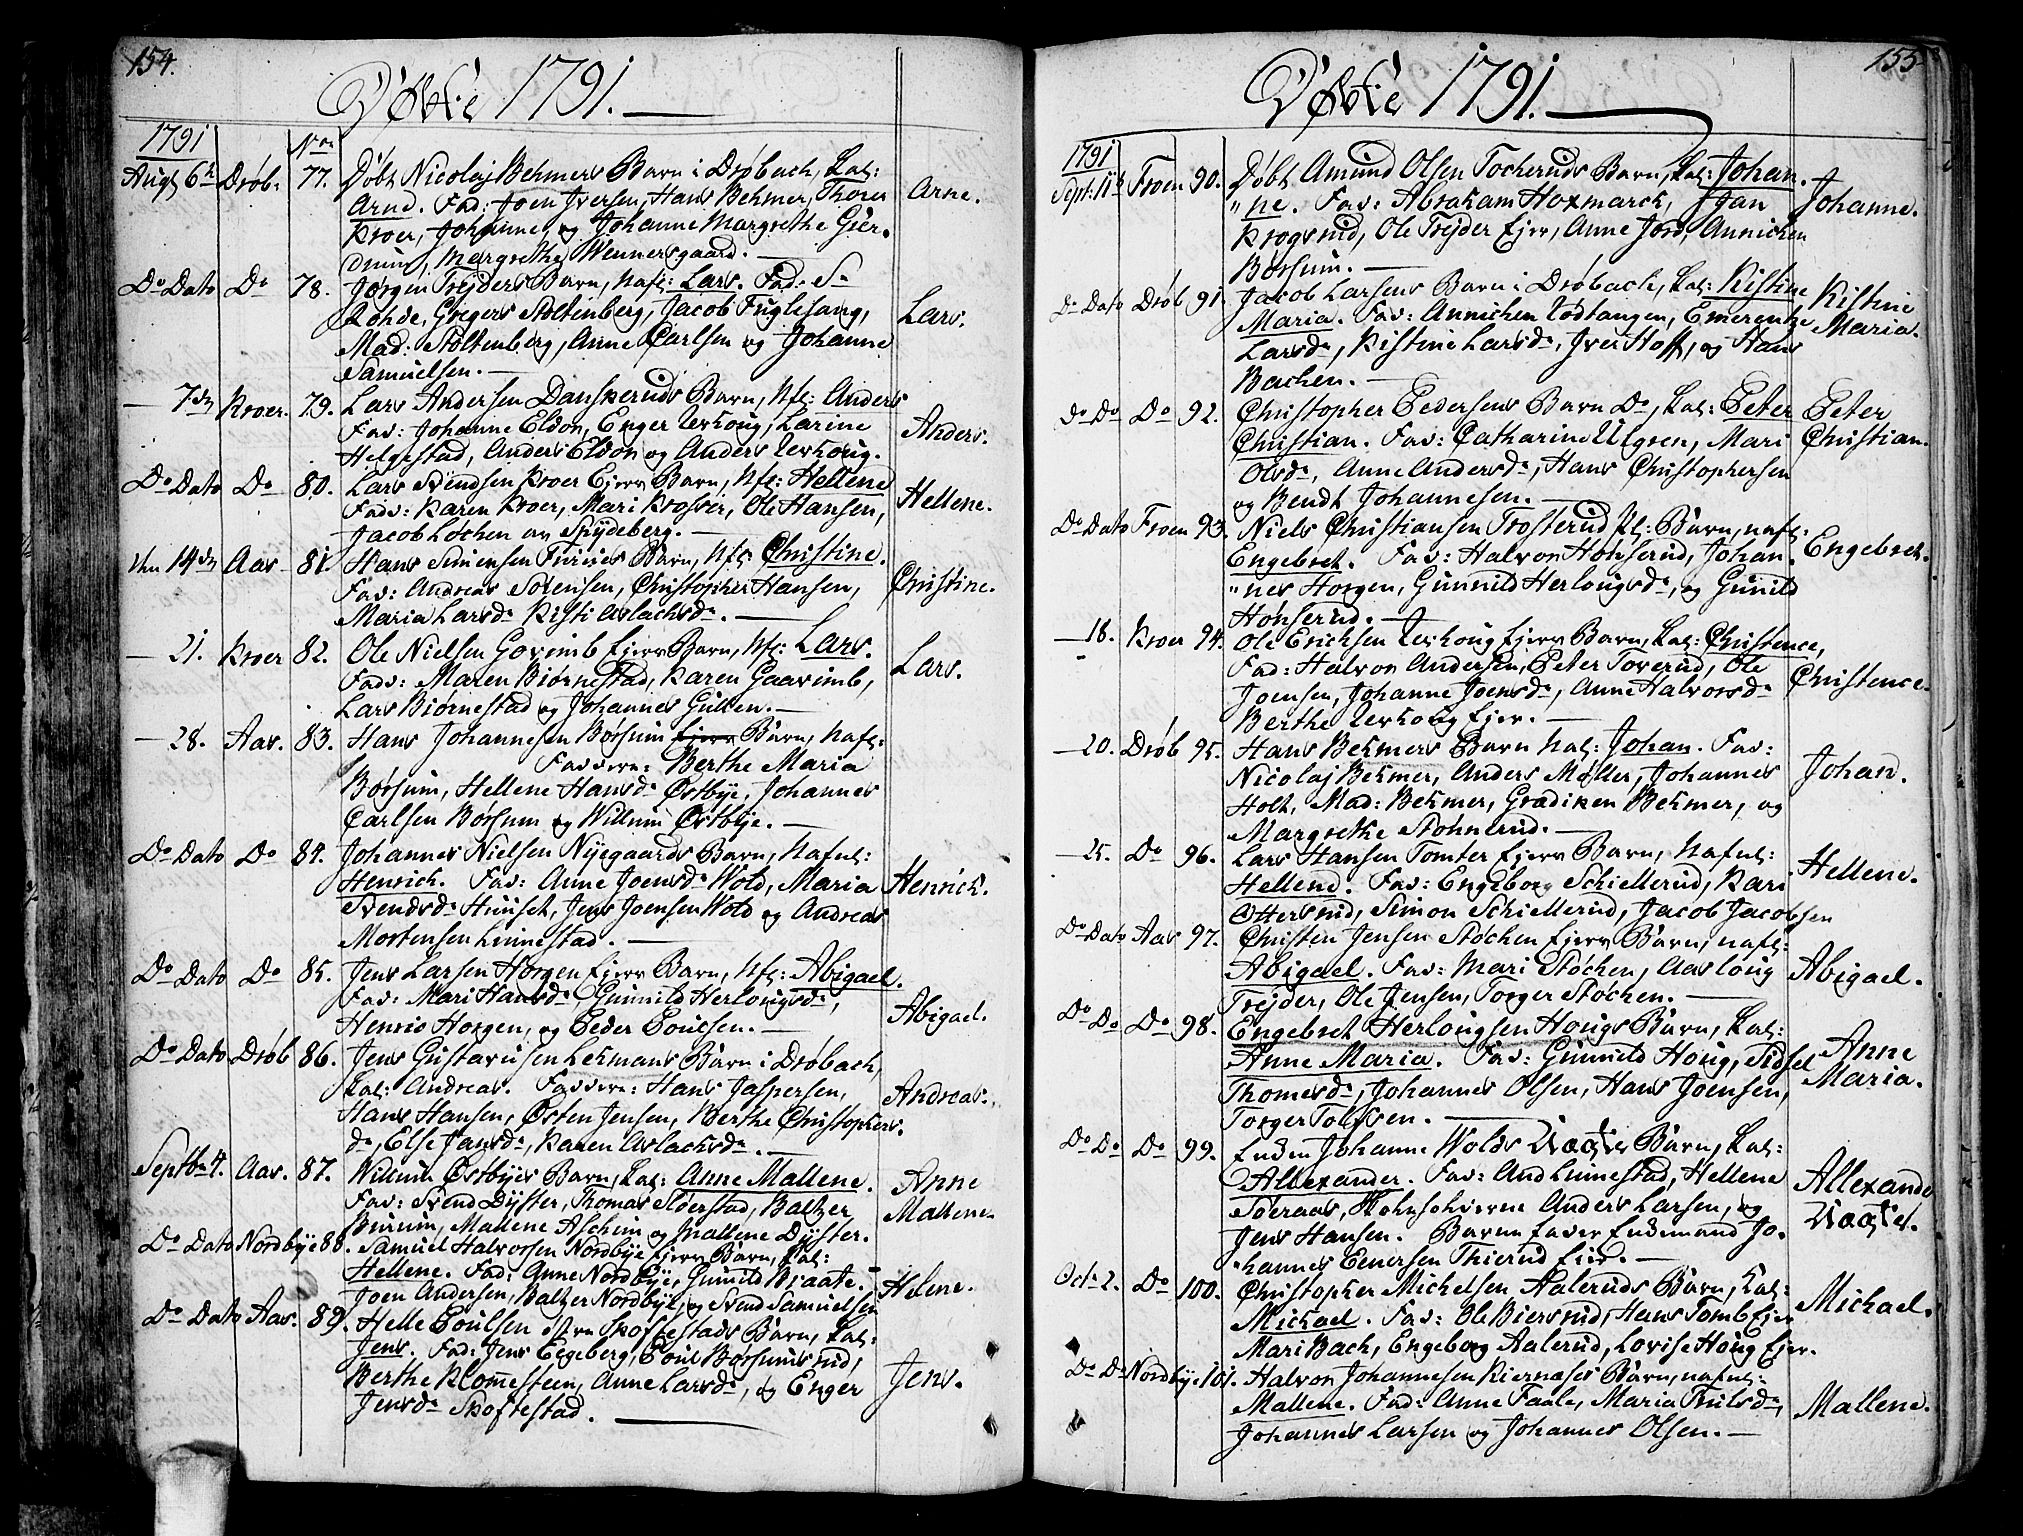 154.
Døbte 1791.
1791
No
Augt 6te Drøb: 77. Døbt Nicolaj Behmers Barn i Drøbach, kal:
Arne. Fad: Joen Iversen, Hans Behmer, Thorer
Kroer, Johanne og Johanne Margrethe Gier-
drum, Margrethe Wennersgaard.
Arne.
Do Dato Do 78. Jørgen Trejders Barn, nafl: Lars. Fad: Sr
Rohde, Gregers Stoltenberg, Jacob Fuglesang,
Mad: Stoltenberg, Anne Carlsen og Johanne
Samuelsen.
Lars.
— 7de Kroer. 79. Lars Andersen Danskeruds Barn, Nfl: Anders
Fad: Johanne Eldor, Enger Verkoug, Larine
Helgestad, Anders Eldor og Anders Verkoug.
Anders.
Do Dato Do 80. Lars Svendsen Kroer Ejers Barn, Nfl: Hellene
Fads: Karen Kroer, Mari Krosser, Ole Hansen,
Jacob Løchen av Spydeberg.
Hellene.
den 14de Aas 81 Hans Simensen Barn, Nfl: Christine.
Fad: Andreas Sørensen, Christopher Hansen,
Maria Larsdr Kisti Aslachsdr.
Christine.
— 21. Kroer 82. Ole Nielsen Govimb Ejers Barn, Nfl: Lars.
Fads: Maren Biørnestad, Karen Gaarimb,
Lars Biørnestad og Johannes Gullen.
Lars.
— 28. Aas. 83. Hans Johannesen Børsum Ejers Barn, Nafl:
Faddere: Berthe Maria
Børsum, Hellene Hansdr Østbye, Johannes
Carlsen Børsum og Willum Østbye.
Do Dato Do 84. Johannes Nielsen Nyegaards Barn, Nafnl:
Henrich. Fad: Anne Joensdr Wold, Maria
Svendsdr Huuset, Jens Joensen Wold og Andreas
Mortensen Linnestad.
Henrich.
Do Dato Do 85. Jens Larsen Horgen Ejers Barn, Nfl: Abigael.
Fad: Mari Hansdr, Gunnild Herlougsdr,
Henric Horgen, og Peder Poulsen.
Abigael.
Do Dato Drøb 86. Jens Gustavusen Lehmans Barn i Drøbach,
kal: Andreas. Faddere: Hans Jaspersen,
Hans Hansen, Østen Jensen, Berthe Christophers
dr, Else Jansdr, Karen Aslachsdr.
Andreas.
Septbr 4. Aas. 87. Willum Østbyes Barn, kal: Anne Mallene.
Fad: Svend Dyster, Thomas Støerstad, Baltzer
Burum, Mallene Aschim og Mallene Dyster.
Anne
Mallene
Do Dato Nordbye 88. Samuel Halvorsen Nordbye Ejers Barn, kal:
Hellene. Fad: Anne Nordbye, Gunild Braate.
Joen Andersen, Baltzer Nordbye, og Svend Samuelsen
Helene.
Do Dato Aas. 89. Helle Poulsen østre Skoftestads Barn, kal:
Jens. Fad: Jens Egeberg, Poul Børsumsrud,
Berthe Klomesteen, Anne Larsdr, og Enger
Jensdr Skoftestad.
Jens.
155
Døbte 1791.
1791
Sept: 11te Froen 90. Døbt Amund Olsen Tocheruds Barn, kal: Johan-
"ne. Fad: Abraham Hoxmarck, Jan
Krogsrud, Ole Trejder Ejer, Anne Jord, Annichen
Børsum.
Johanne.
Do Dato Drøb 91. Jacob Larsens Barn i Drøbach, kal: Kistine
Maria. Fad: Annichen Todtangen, Emerentze
Larsdr, Kistine Larsdr, Iver Hoff, og Hans
Bachen.
Kistine
Maria.
do Do Do 92. Christopher Pedersens Barn Do, kal: Peter
Christian. Fad: Catharine Ulgren, Mari
Olsdr, Anne Andersdr, Hans Christophersen
og Bendt Johannesen.
Peter
Christian.
Do Dato Froen 93. Niels Christiansen Trosterud Pl: Barn, nafl:
Engebret. Fad: Halvor Honserud, Johan-
"nes Horgen, Gunnild Herlougsdr, og Gunild
Honserud.
Engebret.
— 18. Kroer 94. Ole Erichsen Verkoug Ejers Barn, kal: Christence,
Fad: Halvor Andersen, Peter Toverud, Ole
Joensen, Johanne Joensdr, Anne Halvorsdr
Berthe Verkoug Ejer.
Christence.
— 20. Drøb 95. Hans Behmers Barn kal: Johan. Fad:
Nicolaj Behmer, Anders Møller, Johannes
Holt, Mad: Behmer, Grædiken Behmer, og
Margrethe Støhnerud.
Johan.
— 25. Do 96. Lars Hansen Tomter Ejers Barn, Nafnl:
Hellene. Fad: Engeborg Schiellerud, Kari
Ottersrud, Simon Schiellerud, Jacob Jacobsen
Hellene.
Do Dato Aas 97. Christen Jensen Støchen Ejers Barn, nafl:
Abigael. Fad: Mari Støchen, Aasloug
Trejder, Ole Jensen, Torger Støchen.
Abigael.
Do Do Do 98. Engebret Herlougsen Hougs Barn, kal:
Anne Maria. Fad: Gunnild Houg, Sidsel
Thomesdr, Johannes Olsen, Hans Joensen,
Torger Tolfsen.
Anne
Maria.
Do Do Do 99. Luden Johanne Wolds Uægte Barn, kal:
Allexander. Fad: And Linnestad, Hellene
Søeraas, Anders Larsen, og
Jens Hansen. Barne Fader Lndemand Jo-
hannes Enersen Thierud Ejer.
Allexande
Uægte.
Octr 2. Do 100. Christopher Michelsen Aaleruds Barn, kal:
Michael. Fad: Ole Biersrud, Hans Tomb Ejer
Mari Bach, Engeborg Aalerud, Lovise Houg Ejer.
Michael.
Do Do Nordbye 101. Halvor Johannesen Kiernæses Barn, nafnl:
Mallene. Fad: Anne Faale, Maria Truelsdr,
Johannes Larsen og Johannes Olsen.
Mallene.